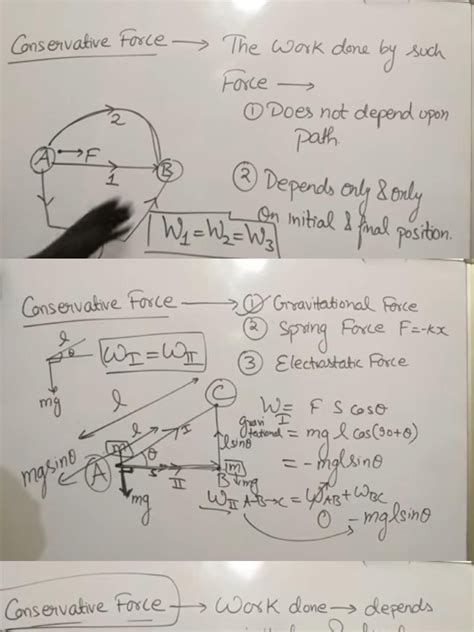 Conservative Force → The work done by such
Force →
① Does not depend upon
path.
② Depends only & only
on initial & final position.
2
A → F
1
B
W₁ = W₂ = W₃
Conservative Force → ① Gravitational Force
② Spring Force F=-kx
③ Electrostatic Force
l
θ
mg
W_I = W_II
l
C
I
mgsinθ
m
A
θ
s
II
B
m
mg
mg
lsinθ
W_I = F S cosθ
gravi
tational = mg l cos(90+θ)
= -mglsinθ
W_II A-B→C = W_AB + W_BC
0 -mglsinθ
Conservative Force → Work done → depends